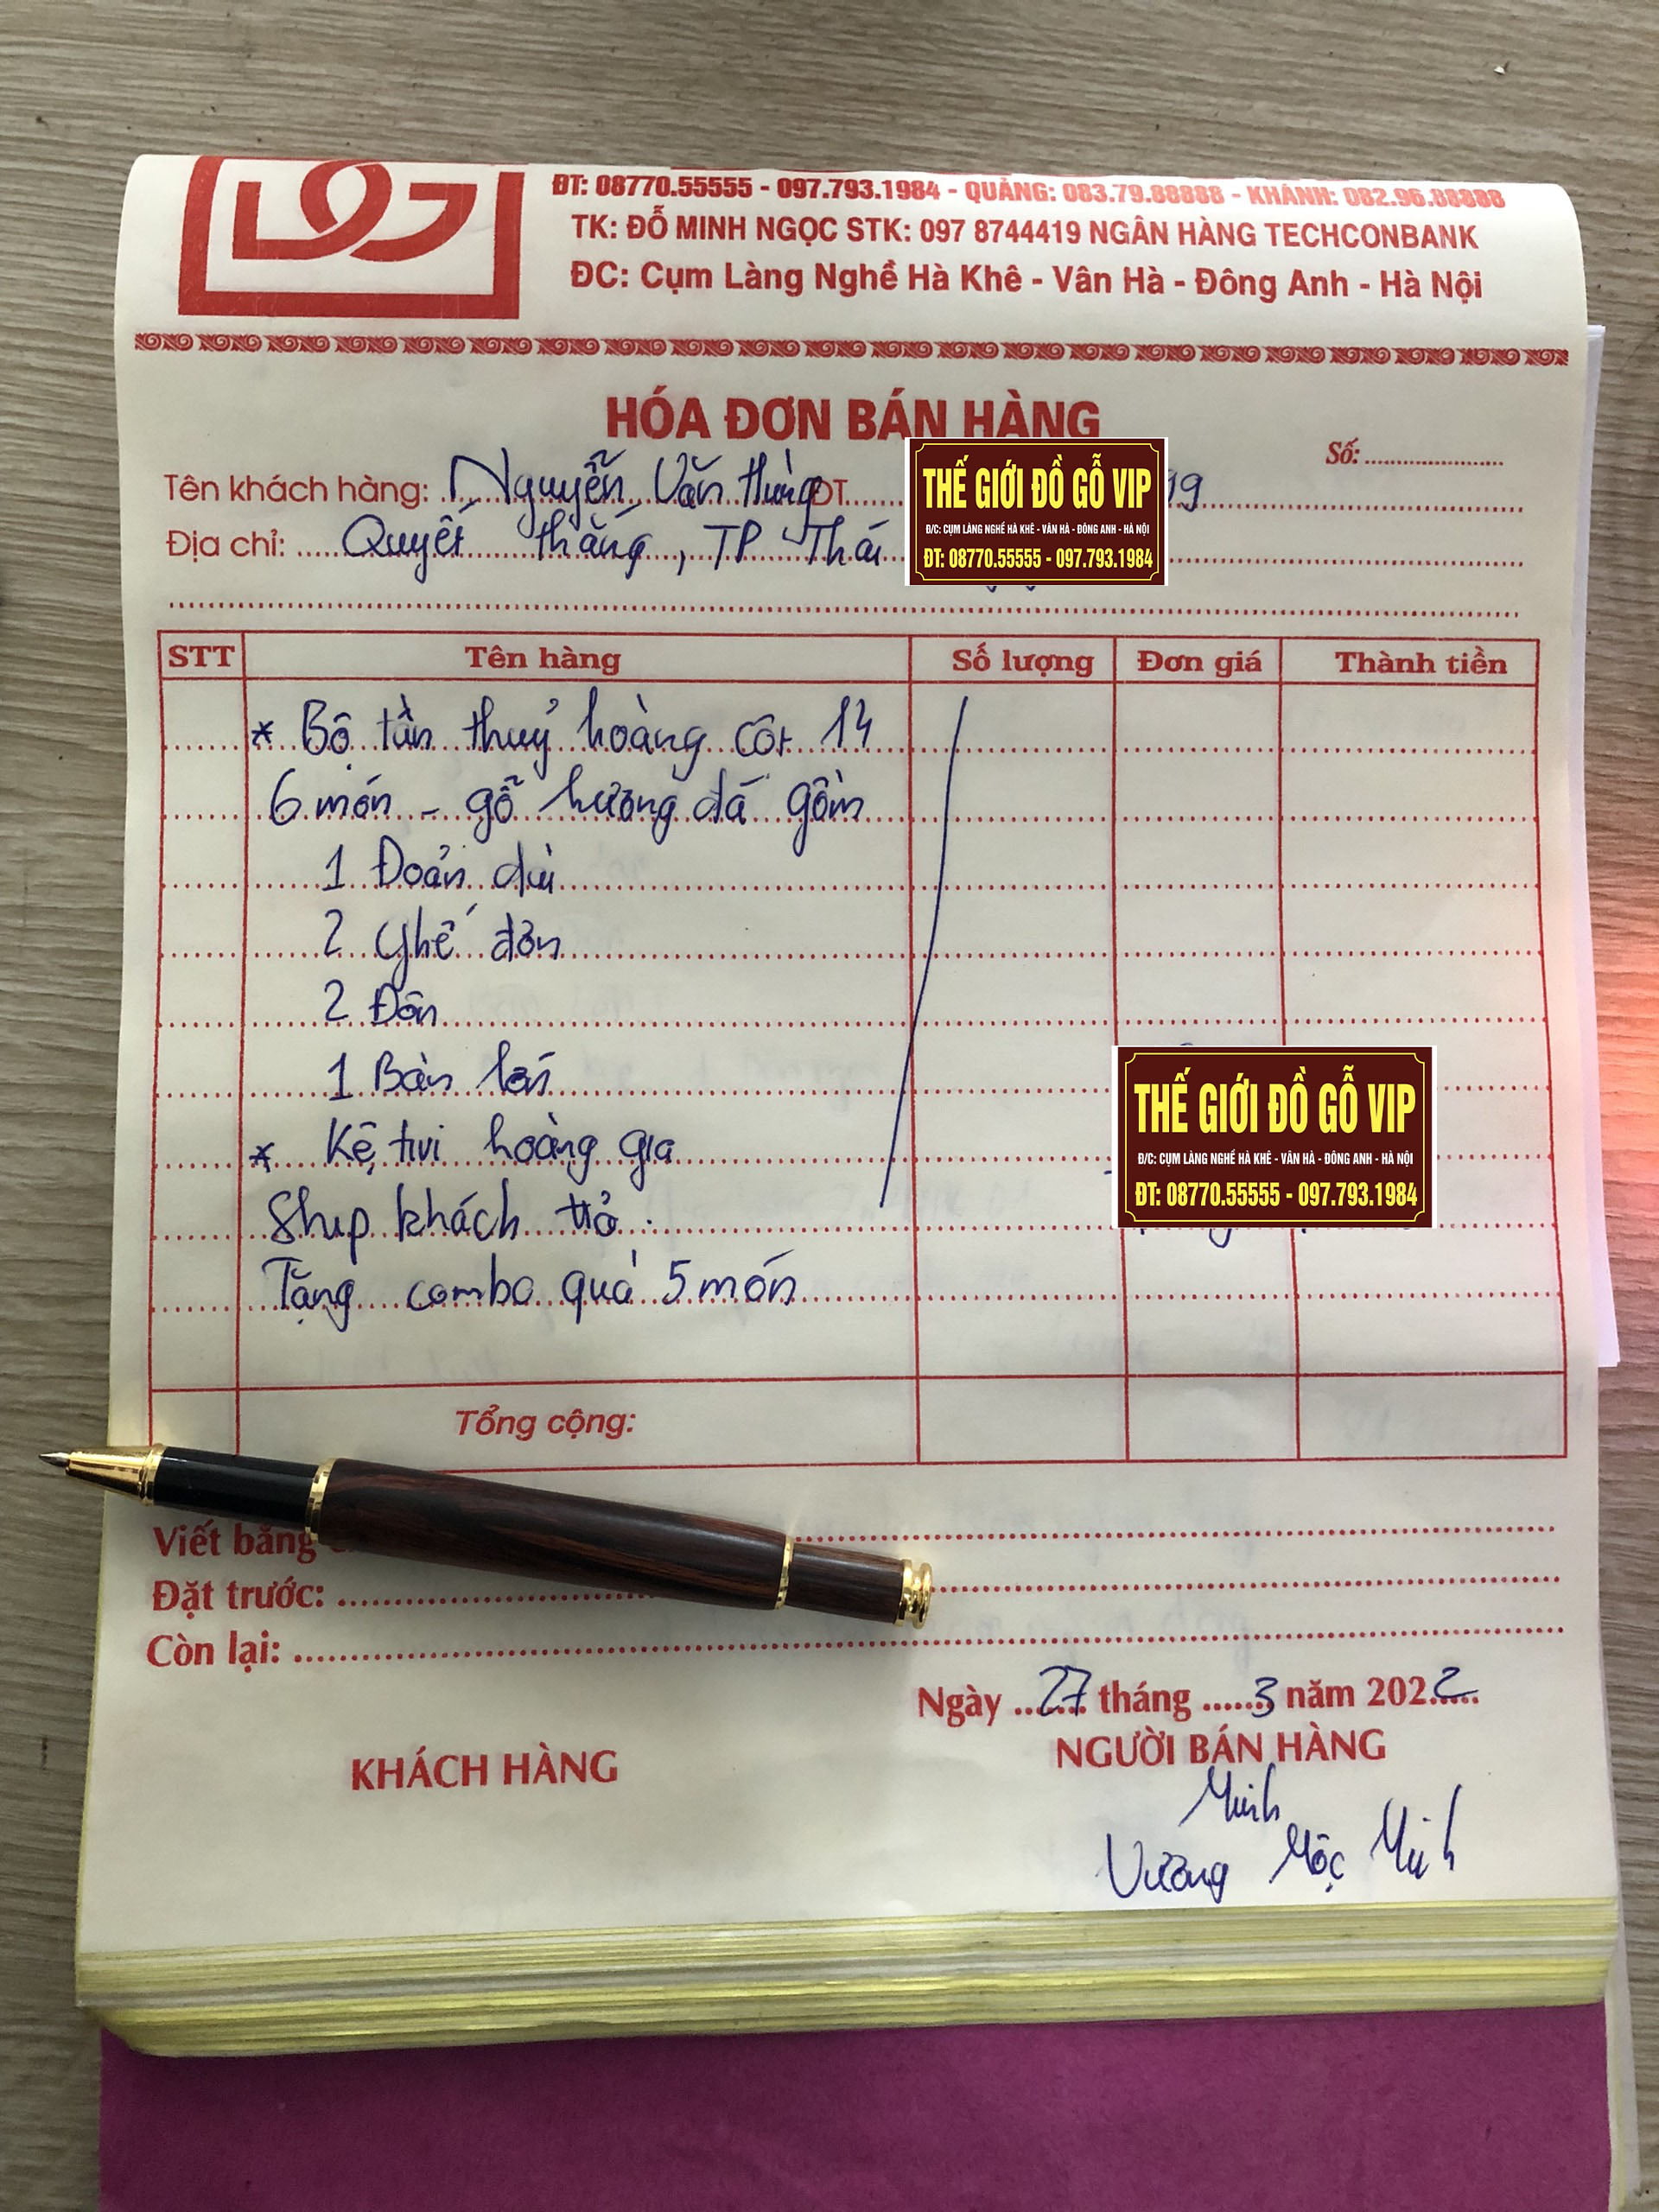 ĐT: 08770.55555 - 097.793.1984 - QUẢNG: 083.79.88888 - KHÁNH: 082.96.88888
TK: ĐỖ MINH NGỌC STK: 097 8744419 NGÂN HÀNG TECHCONBANK
ĐC: Cụm Làng Nghề Hà Khê - Vân Hà - Đông Anh - Hà Nội
HÓA ĐƠN BÁN HÀNG
Số:
Tên khách hàng: Nguyễn Văn Hùng ĐT 19
Địa chỉ: Quyết thắng, TP Thái
THẾ GIỚI ĐỒ GỖ VIP
Đ/C: CỤM LÀNG NGHỀ HÀ KHÊ - VÂN HÀ - ĐÔNG ANH - HÀ NỘI
ĐT: 08770.55555 - 097.793.1984
STT Tên hàng Số lượng Đơn giá Thành tiền
* Bộ tần thuỷ hoàng cột 14
6 món - gỗ hương đá gồm
1 Đoản dài
2 Ghế đơn
2 Đôn
1 Bàn lớn
* Kệ tivi hoàng gia
Ship khách trả.
Tặng combo quà 5 món
THẾ GIỚI ĐỒ GỖ VIP
Đ/C: CỤM LÀNG NGHỀ HÀ KHÊ - VÂN HÀ - ĐÔNG ANH - HÀ NỘI
ĐT: 08770.55555 - 097.793.1984
Tổng cộng:
Viết bằng
Đặt trước:
Còn lại:
Ngày 27 tháng 3 năm 2022
KHÁCH HÀNG
NGƯỜI BÁN HÀNG
Minh
Vương Mộc Minh